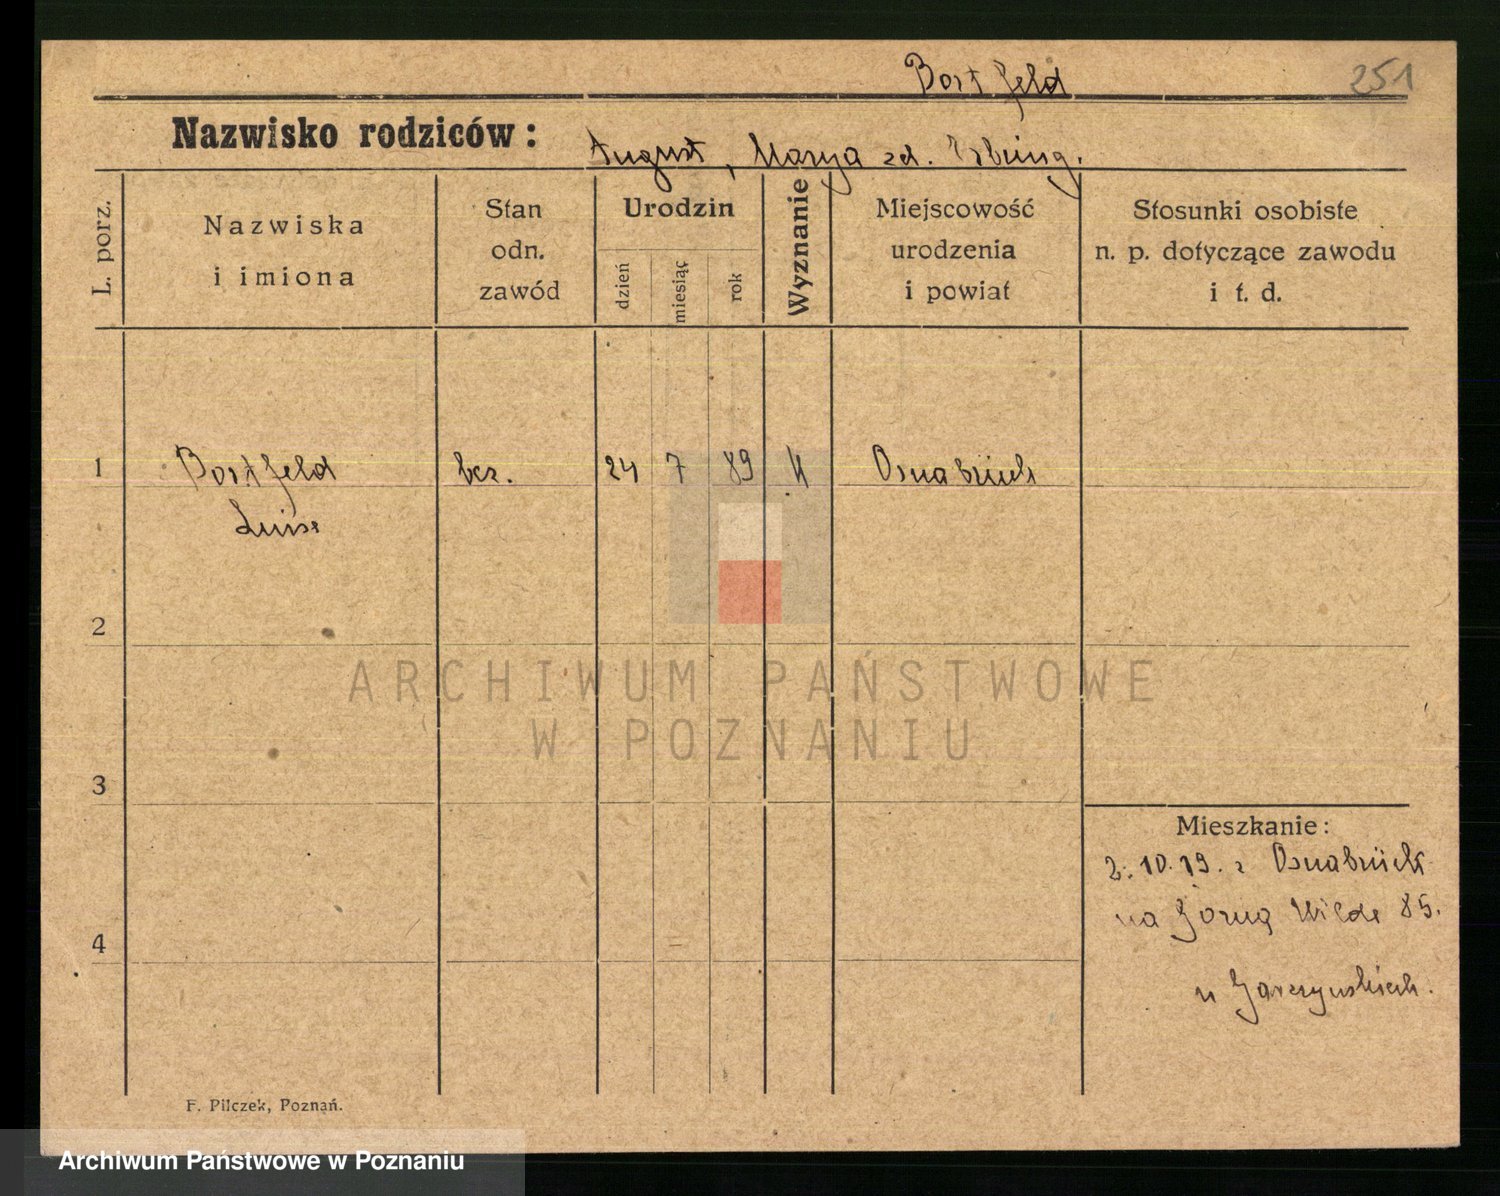 Bortfeld 251
Nazwisko rodziców: August, Marya zd.
L. porz.
Nazwiska
i imiona
Stan
odn.
zawód
Urodzin
dzień
miesiąc
rok
Wyznanie
Miejscowość
urodzenia
i powiat
Stosunki osobiste
n. p. dotyczące zawodu
i t. d.
1 Bortfeld bez. 24 7 89 K Osnabrück
Luise
2
3
4
Mieszkanie:
2.10.19. z Osnabrück
na Górną Wilde 85.
u Garczyńskich.
F. Pilczek, Poznań.
ARCHIWUM PAŃSTWOWE
W POZNANIU
Archiwum Państwowe w Poznaniu